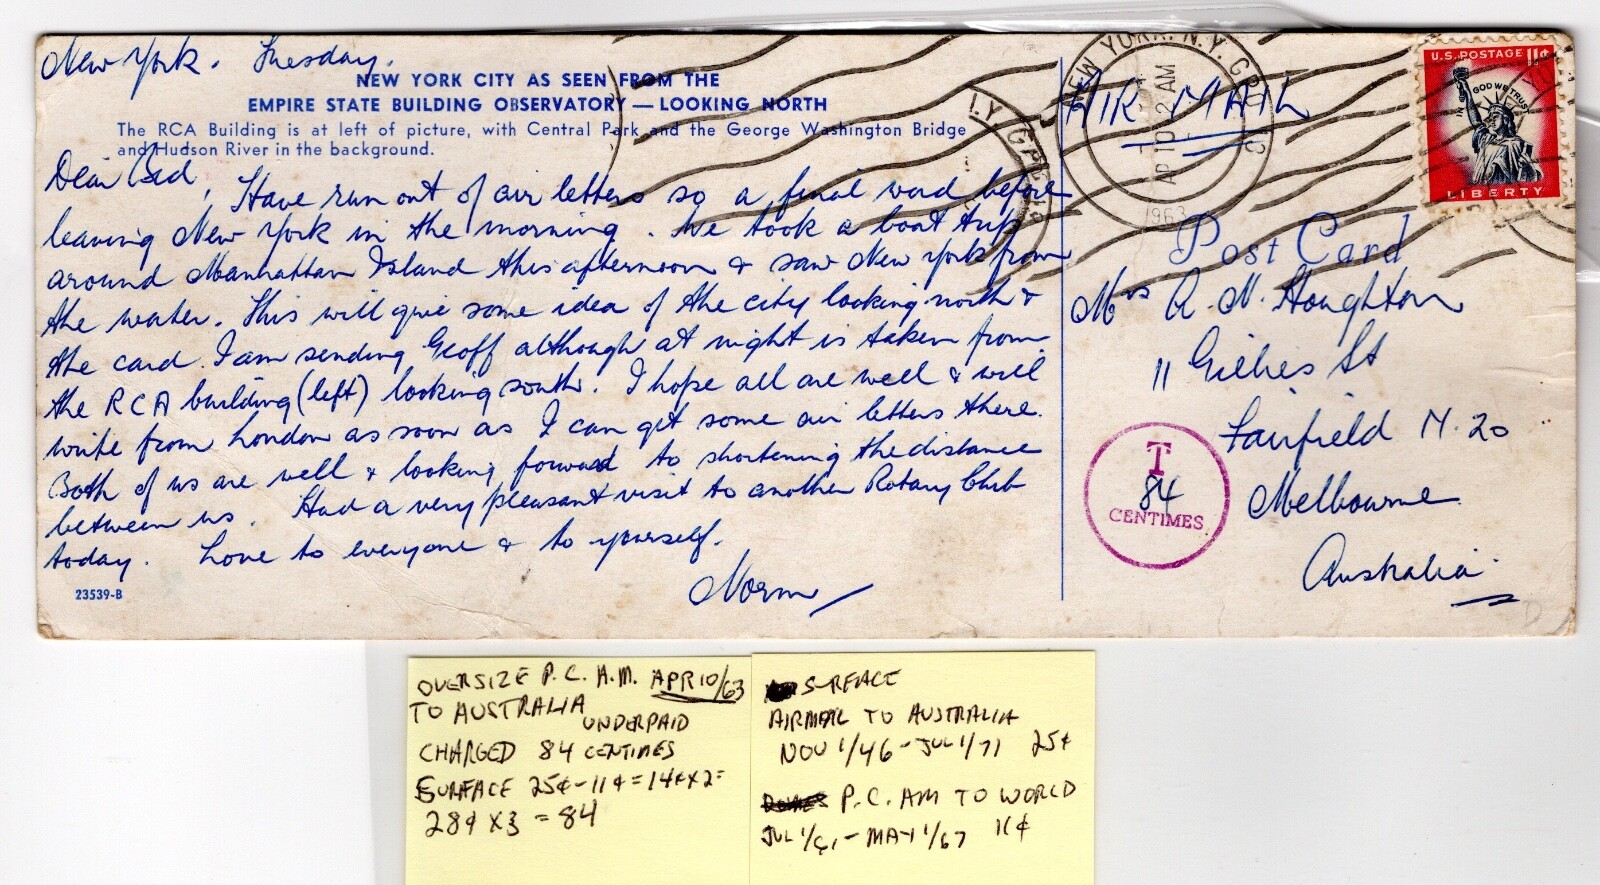 New York. Tuesday.
NEW YORK CITY AS SEEN FROM THE
EMPIRE STATE BUILDING OBSERVATORY — LOOKING NORTH
The RCA Building is at left of picture, with Central Park and the George Washington Bridge
and Hudson River in the background.
Dear
, Have run out of air letters so a final word before
leaving New York in the morning. We took a boat trip
around Manhattan Island this afternoon & saw New York from
the water. This will give some idea of the city looking north &
the card I am sending Geoff although at night is taken from
the RCA building (left) looking south. I hope all are well & will
write from London as soon as I can get some air letters there.
Both of us are well & looking forward to shortening the distance
between us. Had a very pleasant visit to another Rotary Club
today. Love to everyone & to yourself.
Norm
23539-B
AIR MAIL
NEW YORK, N.Y. GPO
AP 10 2 AM
1963
N.Y. GPO
U.S. POSTAGE 11¢
IN GOD WE TRUST
LIBERTY
Post Card
Mrs A. N. Houghton
11 Gillies St
Fairfield N. 20
Melbourne
Australia
T
84
CENTIMES
OVERSIZE P.C. A.M. APR 10/63
TO AUSTRALIA
UNDERPAID
CHARGED 84 CENTIMES
SURFACE 25¢ - 11¢ = 14¢ X 2 =
28¢ X 3 = 84
SURFACE
AIRMAIL TO AUSTRALIA
NOV 1/46 - JUL 1/71 25¢
P.C. AM TO WORLD
JUL 1/61 - MAY 1/67 11¢